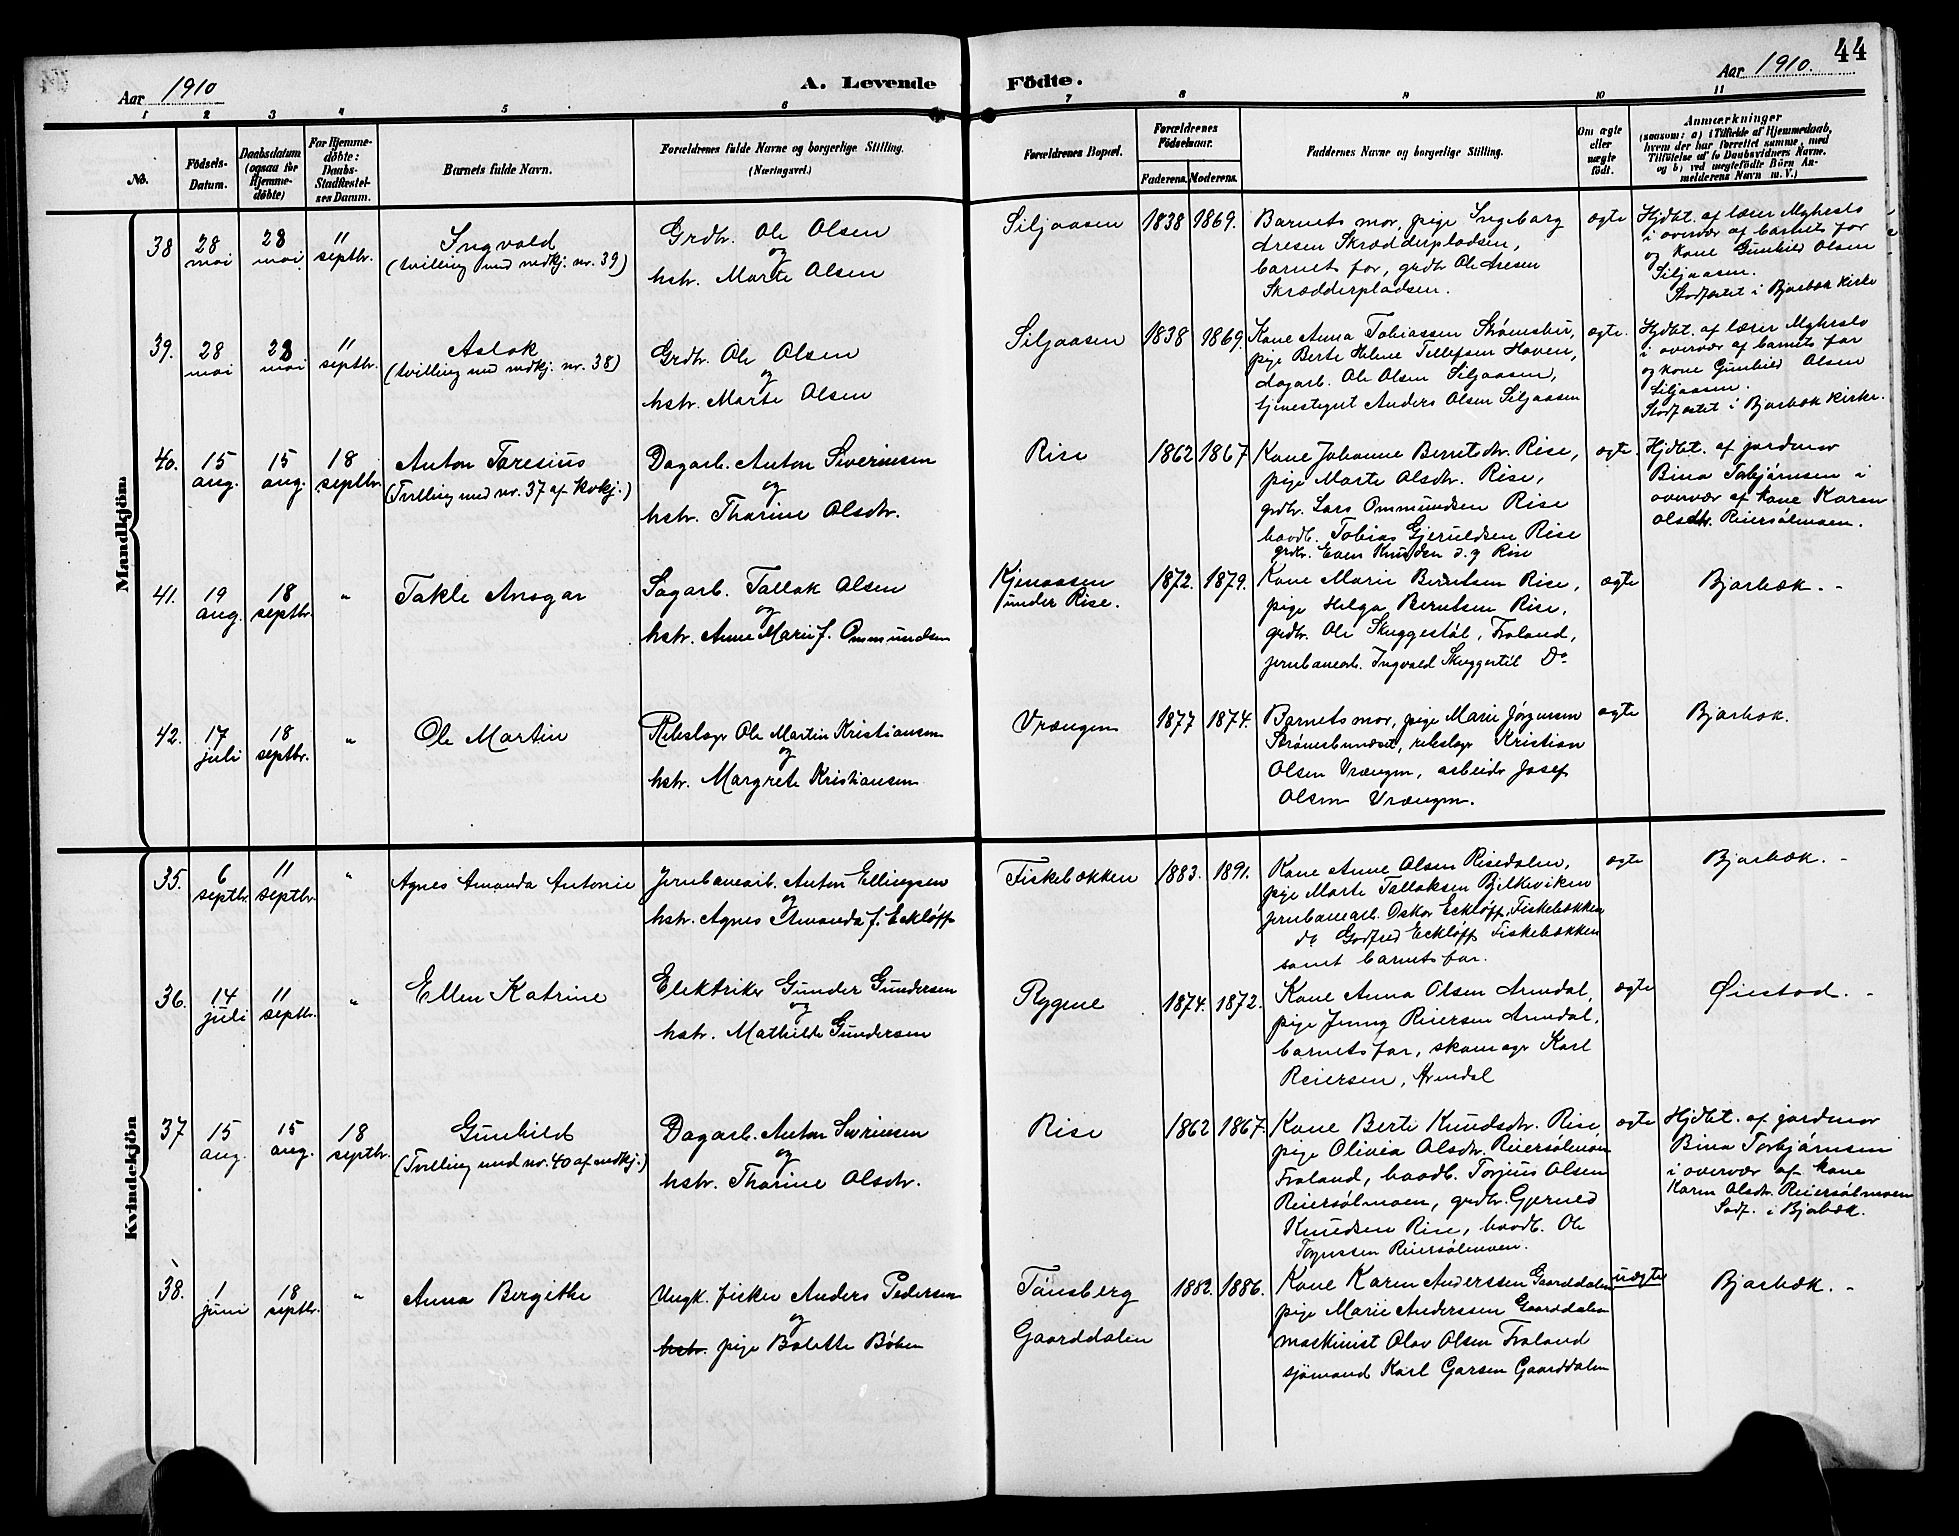 44
Aar 1910
A. Levende
Födte.
Aar 1910.
1 2 3 4 5 6 7 8 9 10 11
No.
Födsels-
Datum.
Daabsdatum
(ogsaa for
Hjemme-
döbte)
For Hjemme-
döbte:
Daabs-
Stadfæstel-
ses Datum.
Barnets fulde Navn.
Forældrenes fulde Navne og borgerlige Stilling.
(Næringsvei.)
Forældrenes Bopæl.
Forældrenes
Födselsaar.
Faderens. Moderens.
Faddernes Navne og borgerlige Stilling.
Om ægte
eller
uægte
födt.
Anmærkninger
(saasom: a) i Tilfælde af Hjemmedaab,
hvem der har forrettet samme, med
Tilföielse af to Daabsvidners Navne.
og b) ved uægtefödte Börn An-
melderens Navn m. V.)
Mandkjön
38 28 mai 28 mai. 11 septbr.
Ingvald
(tvilling med mdkj. nr. 39)
Grdbr. Ole Olsen
og
hstr. Marte Olsen
Siljaasen 1838 1869.
Barnets mor, pige Ingeborg
Aresen Skrædderpladsen,
barnets far, grdbr Ole Aresen
Skrædderpladsen.
ægte
Hjdbt. af lærer
i overvær af barnets far
og kone Gunhild Olsen
Siljaasen.
Stadfæstet i Bjorbæk kirke
39. 28 mai 28 mai 11 septbr.
Aslak
(tvilling med mdkj. nr. 38)
Grdbr. Ole Olsen
og
hstr. Marte Olsen
Siljaasen 1838 1869.
Kone Anna Tobiassen Strømsbu,
pige Berte Helene Tellefsen Haven,
dagarb. Ole Olsen Siljaasen,
tjenestegut Anders Olsen Siljaasen
ægte.
Hjdbt. af lærer
i overvær af barnets far
og kone Gunhild Olsen
Siljaasen.
Stadfæstet i Bjorbæk kirke.
40. 15 aug. 15 aug. 18 septbr.
Anton Taresius
(Tvilling med nr. 37 af kvkj.)
Dagarb. Anton Severinsen
og
hstr. Tharine Olsdtr.
Rise 1862 1867
Kone Johanne Berntsdtr. Rise,
pige Marte Olsdtr. Rise,
grdbr. Lars Ommundsen Rise
baadb. Tobias Gjeruldsen Rise
grdbr. Even Knudsen s. g Rise
ægte.
Hjdbt. af jordmor
Bina Torbjørnsen i
overvær af kone Karen
Olsdtr. Reiersølmoen.
41. 19 aug. 18 septbr. "
Takle Ansgar
Sagarb. Tallak Olsen
og
hstr. Anne Marie f. Ommundsen
Kjenaasen
under Rise.
1872. 1879.
Kone Marie Berntsen Rise,
pige Helga Berntsen Rise,
grdbr. Ole Skuggestøl, Froland,
jernbanearb. Ingvald Skuggestøl Do
ægte
Bjorbæk. -
42. 17 juli 18 septbr. "
Ole Martin
Rebslager Ole Martin Kristiansen
og
hstr. Margrete Kristiansen
Vrængen 1877 1874.
Barnets mor, pige Marie Jørgensen
Strømsbuneset, rebslager Kristian
Olsen Vrængen, arbeider Josef
Olsen Vrængen.
ægte
Bjorbæk.
Kvindekjön
35. 6 septbr. 11 septbr. "
Agnes Amanda Antonie
Jernbanearb. Anton Ellingsen
og
hstr. Agnes Amanda f. Eckløff
Fiskebækken 1883. 1891.
Kone Anne Olsen Risedalen,
pige Marte Tallaksen Bjelkeviken
jernbanearb. Oskar Eckløff, Fiskebækken
do Godfred Eckløff Fiskebækken
samt barnets far.
ægte
Bjorbæk. -
36. 14 juli 11 septbr. "
Ellen Katrine
Elektriker Gunder Gundersen
og
hstr. Mathilde Gundersen
Rygene 1874. 1872.
Kone Anna Olsen Arendal,
pige Jenny Reiersen Arendal,
barnets far, skomager Karl
Reiersen, Arendal
ægte
Øiestad. -
37 15 aug. 15 aug. 18 septbr.
Gunhild
(Tvilling med nr. 40 af mdkj.)
Dagarb. Anton Severinsen
og
hstr. Tharine Olsdtr.
Rise 1862 1867.
Kone Berte Knudsdtr. Rise
pige Olivia Olsdtr. Reiersølmoen
Froland, baadb. Torjus Olsen
Reiersølmoen, grdbr. Gjeruld
Knudsen Rise, baadb. Ole
Torjussen Reiersølmoen.
ægte
Hjdbt. af jordmor
Bina Torbjørnsen
i overvær af kone
Karen Olsdtr. Reiersølmoen
Stadf. i Bjorbæk.
38. 1 juni 18 septbr. "
Anna Bergithe
Ungk. fisker Anders Pedersen
og
hstr. pige Bolette Bøben
Tønsberg
Gaarddalen
1882. 1886.
Kone Karen Anderssen Gaarddalen
pige Marie Anderssen Gaarddalen
maskinist Olav Olsen Froland
sjømand Karl Garsen Gaarddalen
uægte
Bjorbæk. -